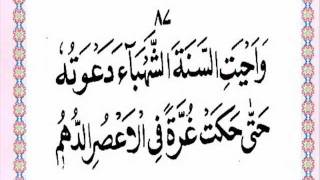 ٨٧
وَاَحْيَتِ السَّنَةَ الشَّهْبَآءَ دَعْوَتُهٗ
حَتّٰى حَكَتْ غُرَّةً فِى الْاَعْصُرِ الدُّهُمِ